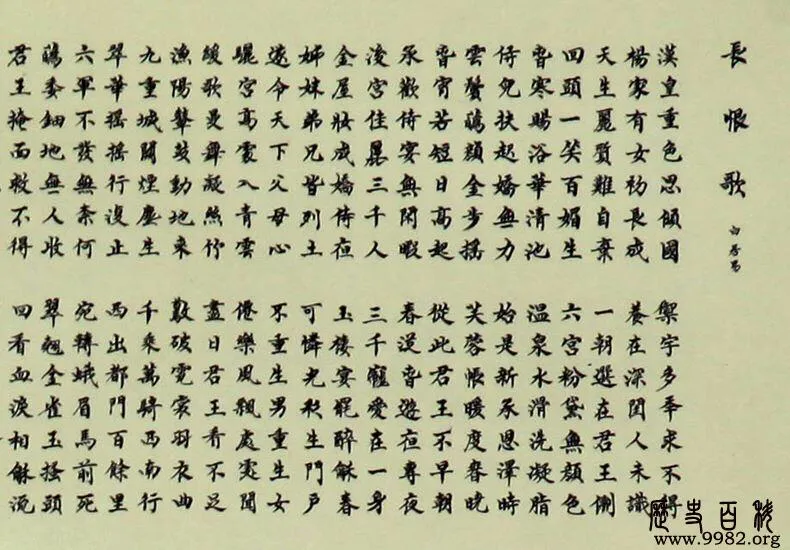 長恨歌
白居易
漢皇重色思傾國
禦宇多年求不得
楊家有女初長成
養在深閨人未識
天生麗質難自棄
一朝選在君王側
回頭一笑百媚生
六宮粉黛無顏色
春寒賜浴華清池
溫泉水滑洗凝脂
侍兒扶起嬌無力
始是新承恩澤時
雲鬢蘤顏金步搖
芙蓉帳暖度春曉
春宵苦短日高起
從此君王不早朝
承歡侍宴無閑暇
春從春遊夜專夜
後宮佳麗三千人
三千寵愛在一身
金屋妝成嬌侍夜
玉樓宴罷醉龢春
姊妹弟兄皆列土
可憐光彩生門戶
遂令天下父母心
不重生男重生女
驪宮高處入青雲
僊樂風飄處處聞
緩歌曼舞凝絲竹
盡日君王看不足
漁陽鼙鼓動地來
驚破霓裳羽衣曲
九重城闕煙塵生
千乘萬騎西南行
翠華搖搖行復止
西出都門百餘里
六軍不發無奈何
宛轉蛾眉馬前死
蘤委鈿地無人收
翠翹金雀玉搔頭
君王掩面救不得
回看血淚相龢流
歷史百科
www.9982.org